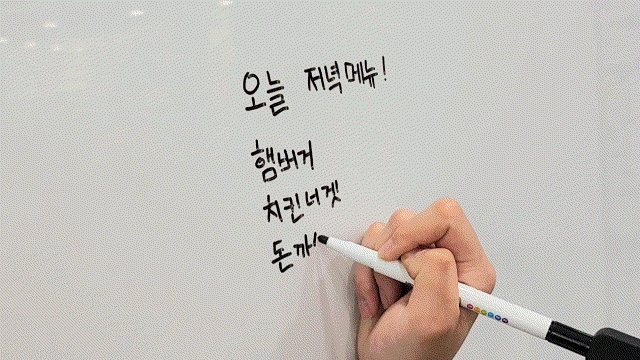 오늘 저녁메뉴!
햄버거
치킨너겟
돈까